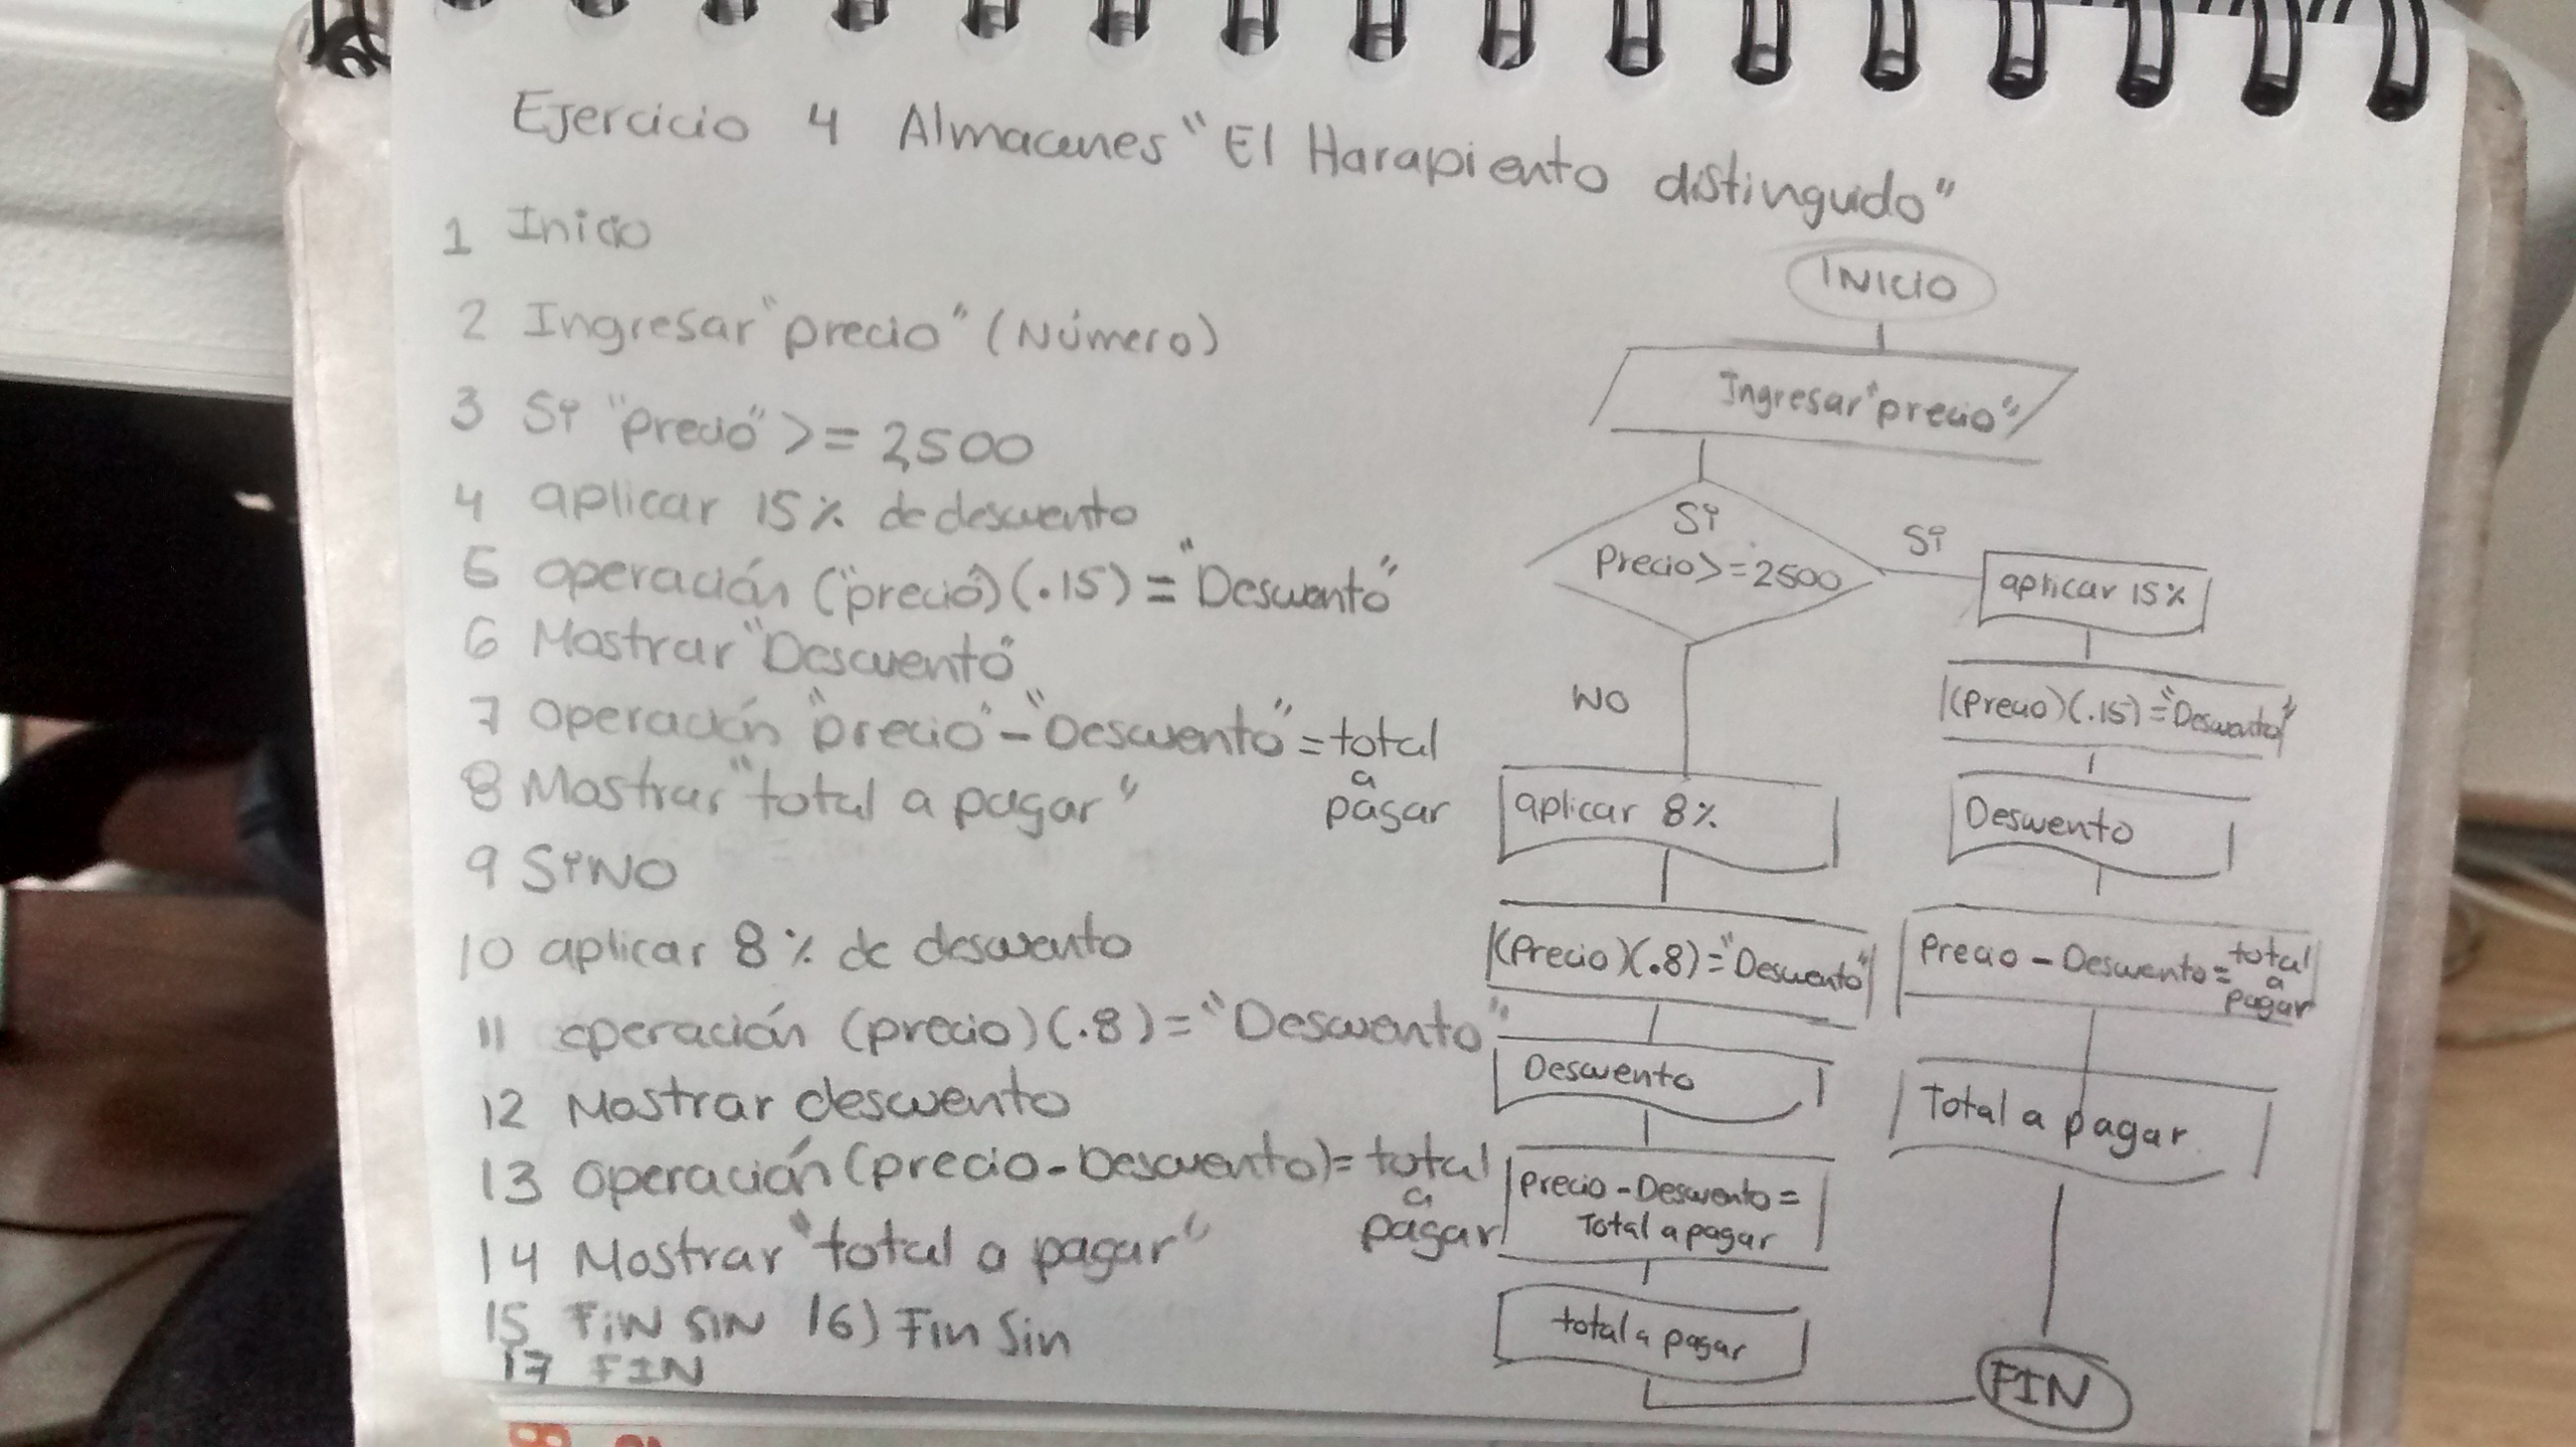 Ejercicio 4 Almacenes "El Harapiento distinguido"
1 Inicio
2 Ingresar "precio" (Número)
3 Si "precio" >= 2,500
4 aplicar 15% de descuento
5 operación ("precio")(.15) = "Descuento"
6 Mostrar "Descuento"
7 operación "precio" - "Descuento" = total a pagar
8 Mostrar "total a pagar"
9 SiNO
10 aplicar 8% de descuento
11 operación (precio)(.8) = "Descuento"
12 Mostrar descuento
13 operación (precio - Descuento) = total a pagar
14 Mostrar "total a pagar"
15 FiN SIN 16) Fin Sin
17 FIN
INICIO
Ingresar "precio"
Si
Precio >= 2500
Si
aplicar 15%
(precio)(.15) = "Descuento"
Descuento
Precio - Descuento = total a pagar
Total a pagar
NO
aplicar 8%
(Precio)(.8) = "Descuento"
Descuento
Precio - Descuento =
Total a pagar
total a pagar
FIN